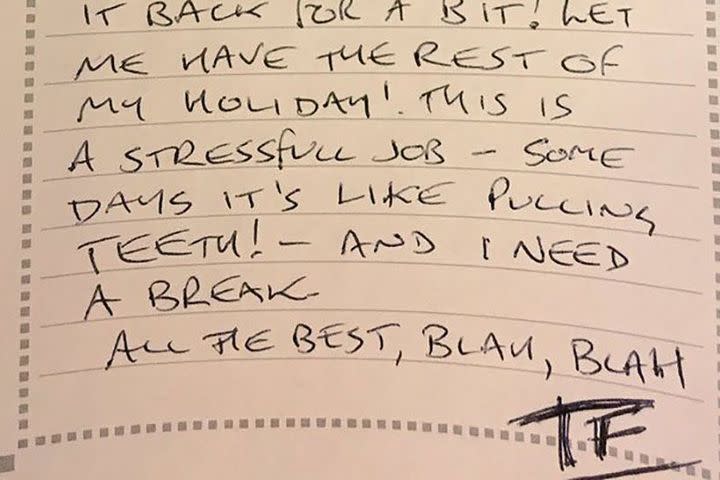 IT BACK FOR A BIT! LET
ME HAVE THE REST OF
MY HOLIDAY! THIS IS
A STRESSFULL JOB – SOME
DAYS IT'S LIKE PULLING
TEETH! – AND I NEED
A BREAK.
ALL THE BEST, BLAH, BLAH
TF